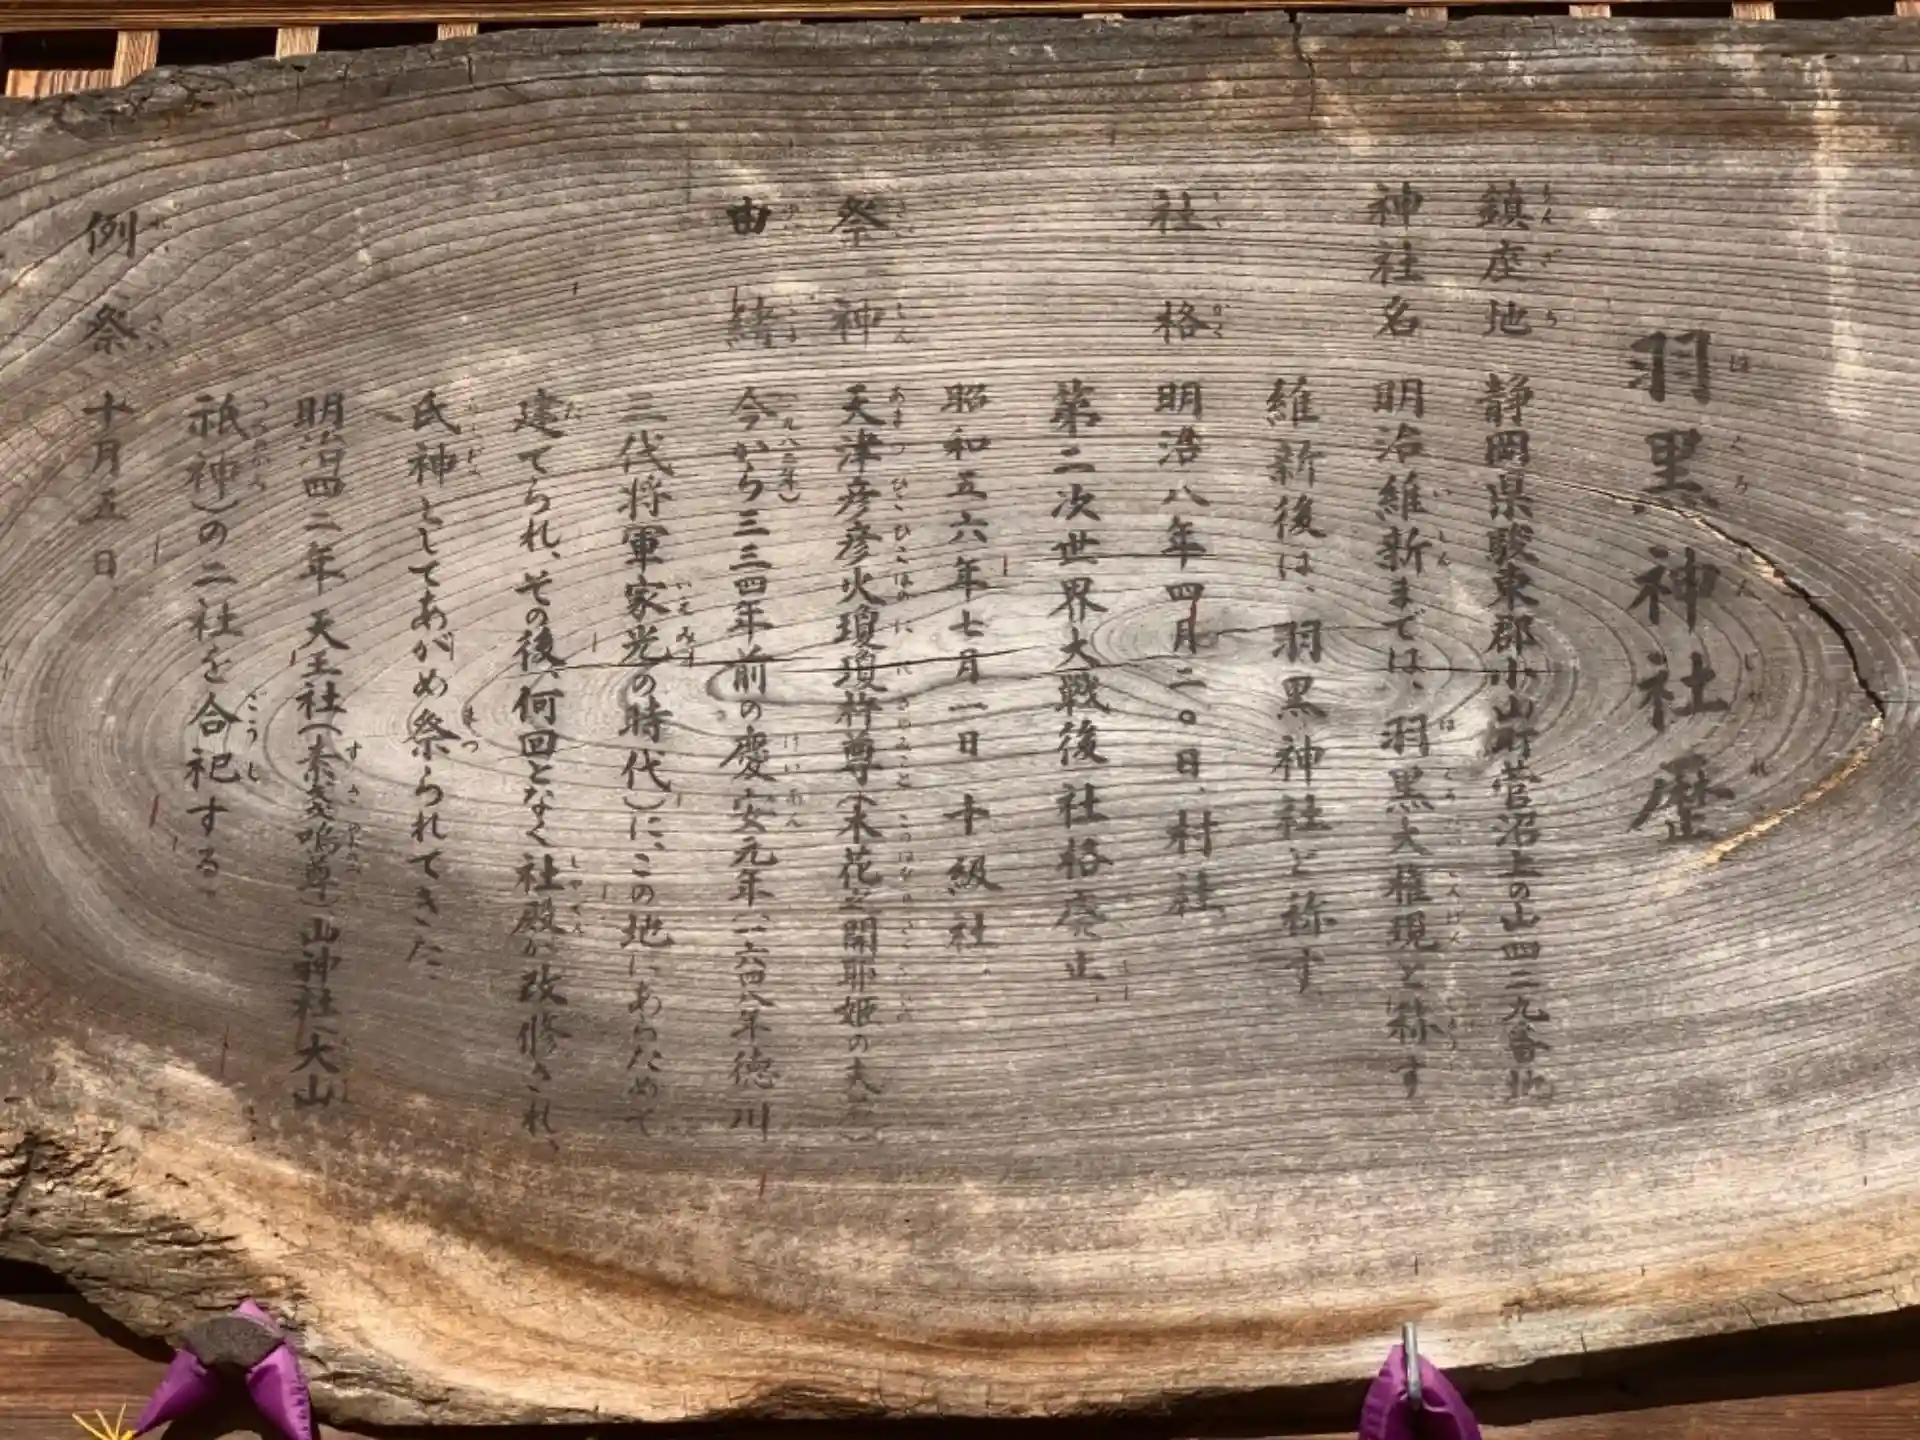 羽黒神社歴
鎮座地 静岡県駿東郡小山町菅沼上の山四二九番地
神社名 明治維新までは、羽黒大権現と称す
維新後は、羽黒神社と称す
社格 明治八年四月二〇日、村社
第二次世界大戦後社格廃止
昭和五六年七月一日 十級社
祭神 天津彦彦火瓊瓊杵尊(木花之開耶姫の夫君)
由緒 今から三三四年前の慶安元年(一六四八年徳川
三代将軍家光の時代)に、この地にあらためて
建てられ、その後、何回となく社殿が改修され、
氏神としてあがめ祭られてきた
明治四二年 天王社(素戔嗚尊)山神社(大山
祇神)の二社を合祀する
例祭 十月五日